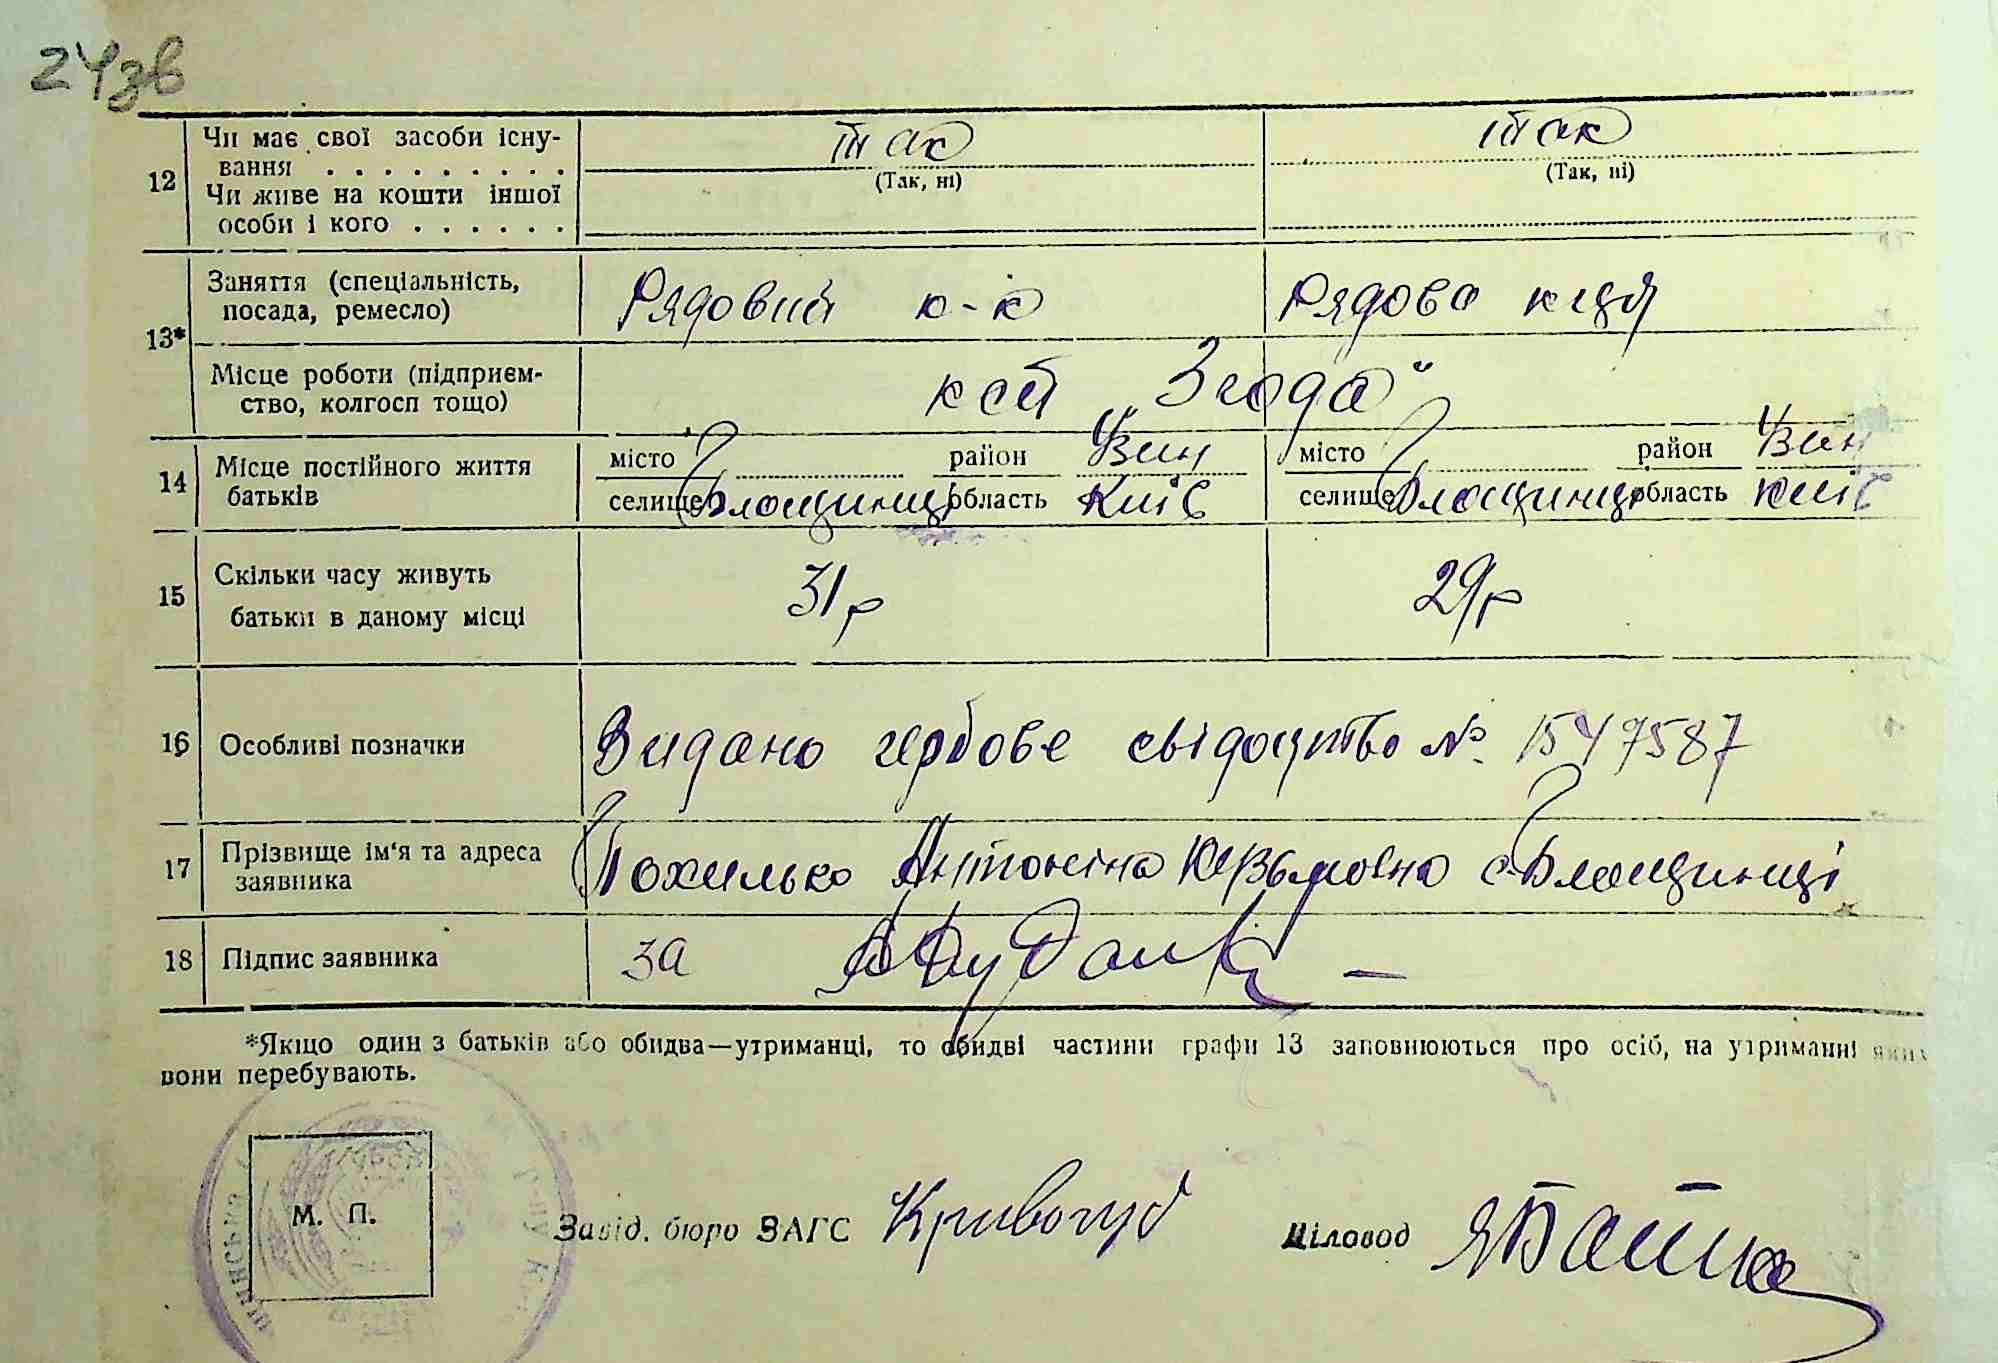 24зв
12 Чи має свої засоби існу- так так
вання . . . . . . . . . (Так, ні) (Так, ні)
Чи живе на кошти іншої
особи і кого . . . . . .
Заняття (спеціальність, Рядовий к-к Рядова
посада, ремесло)
13*
Місце роботи (підприєм- "Згода"
ство, колгосп тощо)
14 Місце постійного життя місто район місто район
батьків селище Блощинці область Київ селище Блощинці область Київ
15 Скільки часу живуть 31 р 29 р
батьки в даному місці
16 Особливі позначки Видано гербове свідоцтво № 1547587
17 Прізвище ім'я та адреса Похилько Антоніна Кузьмовна с Блощинці
заявника
18 Підпис заявника за
*Якщо один з батьків або обидва—утриманці, то обидві частини графи 13 заповнюються про осіб, на утриманні яких
вони перебувають.
М. П. Завід. бюро ЗАГС Кривогуб Діловод